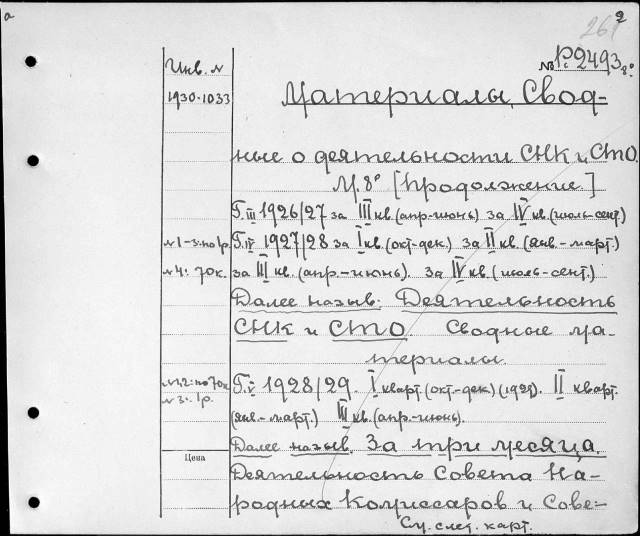 a
261 2
Инв. №
№ Рс 2493 8°
1930-1033
Материалы, Свод-
ные о деятельности СНК и СТО.
М. 8° [Продолжение.]
Г. III 1926/27 за III кв. (апр-июнь) за IV кв. (июль-сент.)
№1-3: по 1р. Г. IV 1927/28 за I кв. (окт-дек.) за II кв. (янв.-март.)
№4: 70к. за III кв. (апр.-июнь). За IV кв. (июль-сент.)
Далее назыв: Деятельность
СНК и СТО. Сводные ма-
териалы.
№1,2: по 70к Г. V 1928/29. I кварт. (окт.-дек.) (1929). II кварт.
№3: 1р. (янв.-март.) III кв. (апр.-июнь).
Далее назыв. За три месяца.
Цена
Деятельность Совета На-
родных Комиссаров и Сове-
См. след. карт.